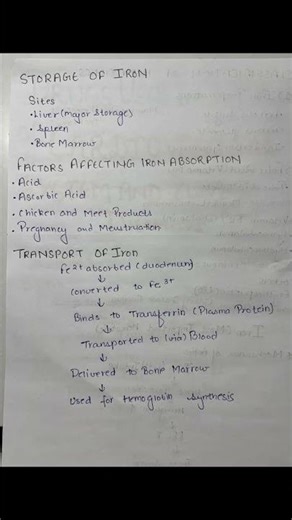 STORAGE OF IRON
Sites
• Liver (major storage)
• Spleen
• Bone Marrow
FACTORS AFFECTING IRON ABSORPTION
• Acid
• Ascorbic Acid
• Chicken and Meet Products
• Pregnancy and Menstruation
TRANSPORT OF Iron
Fe2+ absorbed (duodenum)
↓
Converted to Fe3+
↓
Binds to Transferrin (Plasma Protein)
↓
Transported to (via) Blood
↓
Delivered to Bone Marrow
↓
Used for Hemoglobin Synthesis